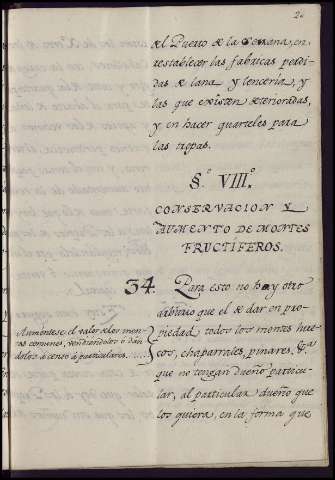 el Puerto de la Semana, en
restablecer las fabricas perdi-
das de lana y lenceria, y
las que existen deterioradas,
y en hacer quarteles para
las tropas.
§.º VIII.º
CONSERVACION Y
AUMENTO DE MONTES
FRUCTÍFEROS.
34. Para esto no hay otro
arbitrio que el de dar en pro-
piedad todos los montes hue-
cos, chaparrales, pinares, &.ª
que no tengan dueño particu-
lar, al particular dueño que
los quiera, en la forma que
Aumentese el valor de los mon-
tes comunes, vendiendolos ó dan
dolos à censo à particulares.....